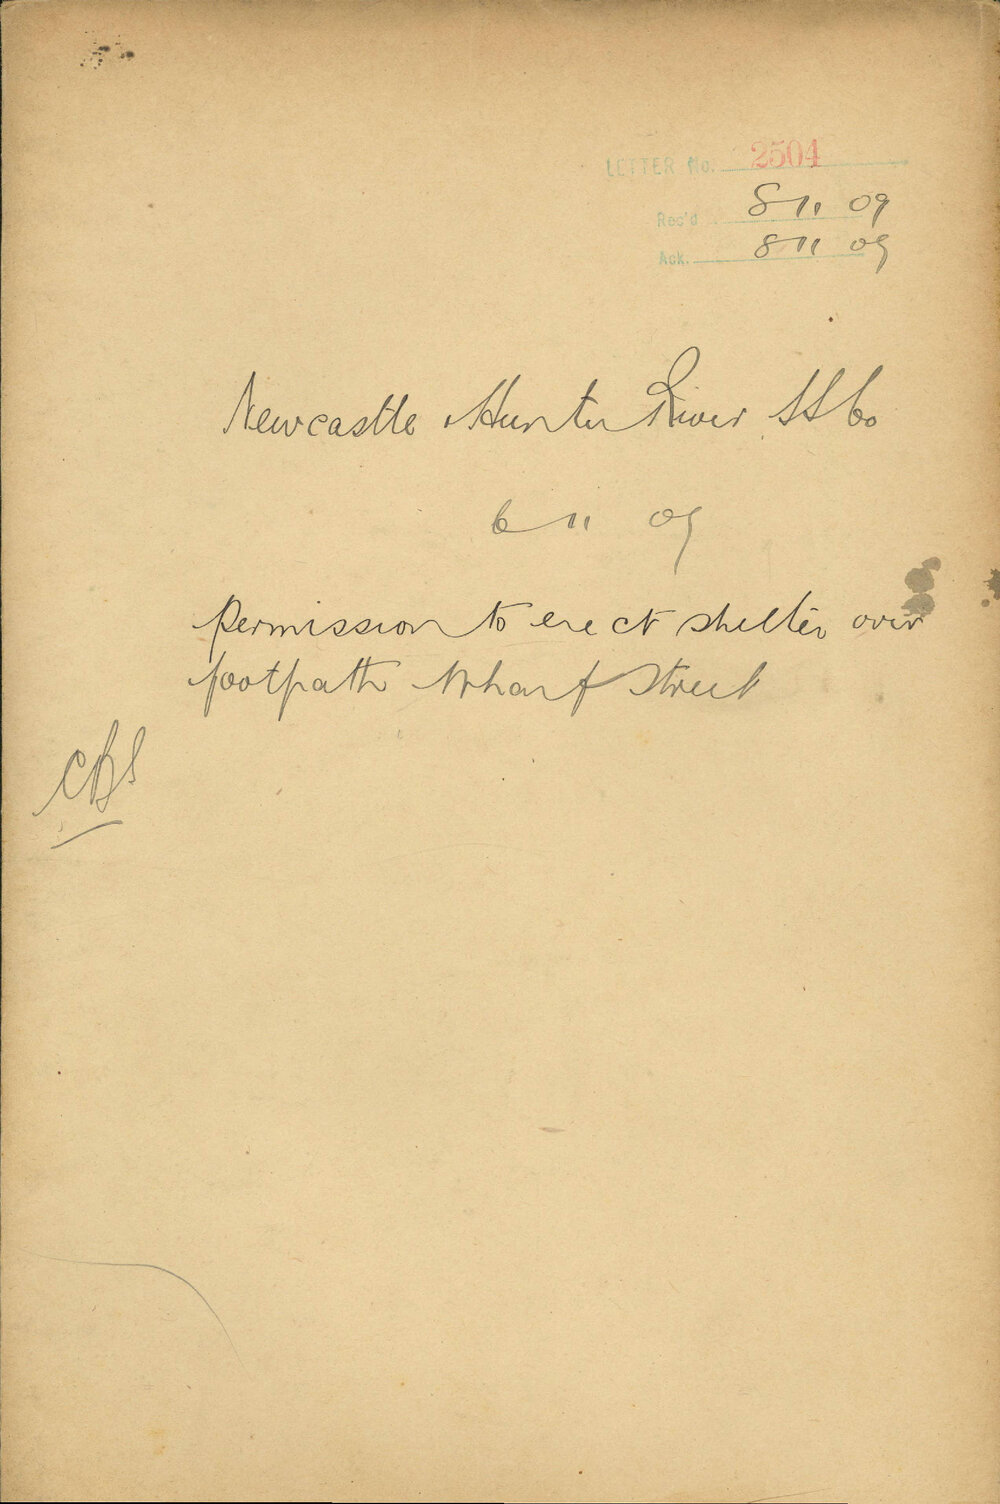 LETTER No. 2504
Rec'd 8 11 09
Ack. 8 11 09
Newcastle Hunter River SS Co
6 11 09
permission to erect shelter over
footpath Wharf Street